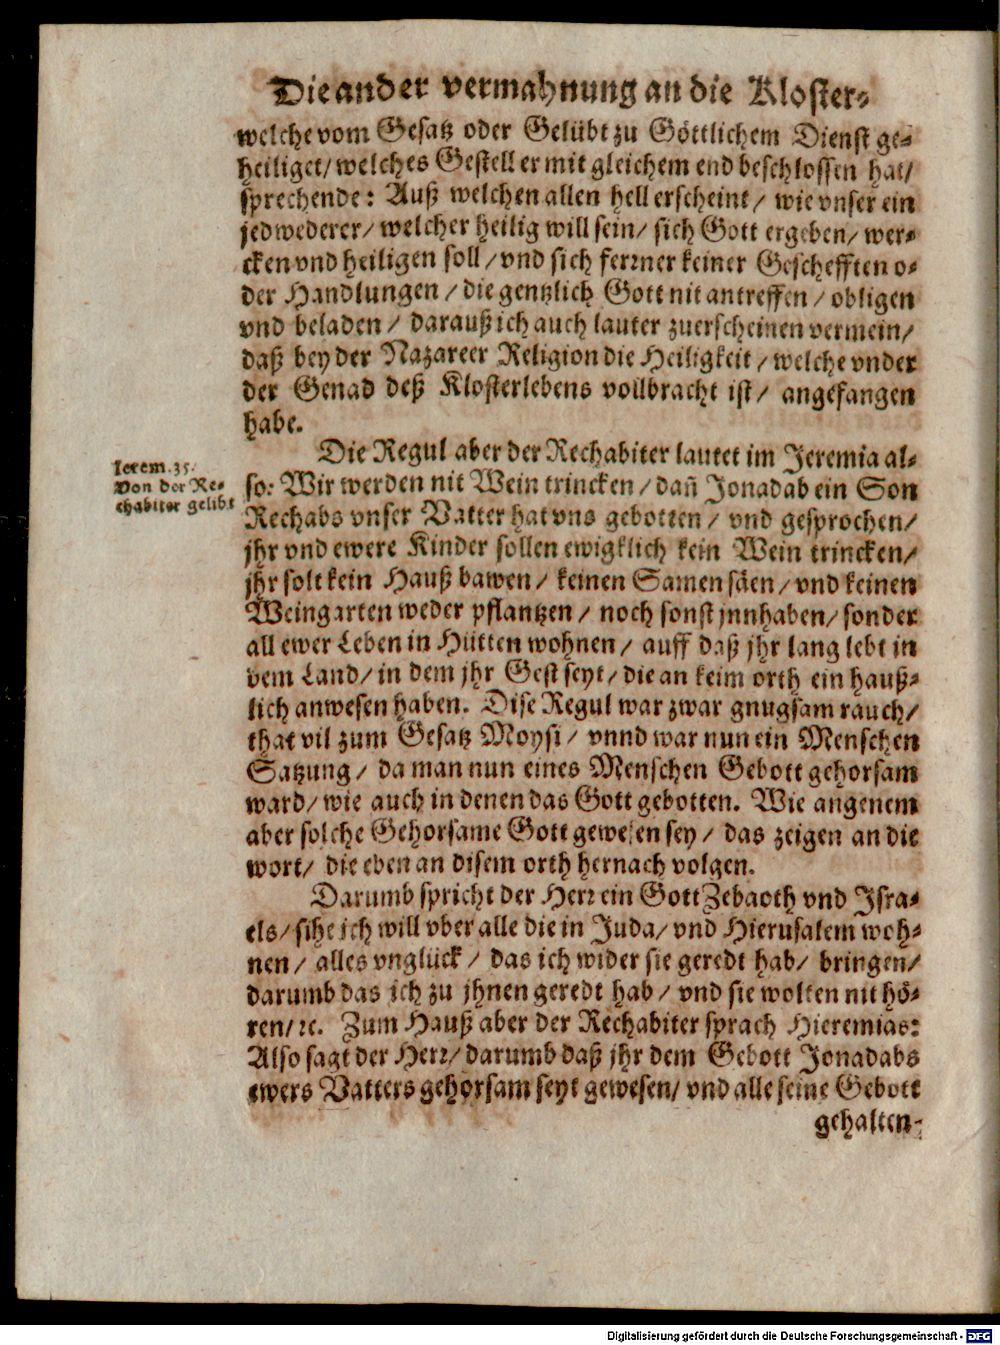 Die ander vermahnung an die Kloster-
welche vom Gesatz oder Gelübt zu Göttlichem Dienst ge-
heiliget/ welches Gestell er mit gleichem end beschlossen hat/
sprechende: Auß welchen allen hell erscheint/ wie vnser ein
jedwederer/ welcher heilig will sein/ sich Gott ergeben/ wer-
cken vnd heiligen soll/ vnd sich ferrner keiner Geschefften o-
der Handlungen/ die gentzlich Gott nit antreffen/ obligen
vnd beladen/ darauß ich auch lauter zuerscheinen vermein/
daß bey der Nazareer Religion die Heiligkeit/ welche vnder
der Genad deß Klosterlebens vollbracht ist/ angefangen
habe.
Ierem.35.
Von der Re-
chabiter gelibt
Die Regul aber der Rechabiter lautet im Jeremia al-
so: Wir werden nit Wein trincken/ dañ Jonadab ein Son
Rechabs vnser Vatter hat vns gebotten/ vnd gesprochen/
jhr vnd ewere Kinder sollen ewigklich kein Wein trincken/
jhr solt kein Hauß bawen/ keinen Samen säen/ vnd keinen
Weingarten weder pflantzen/ noch sonst jnnhaben/ sonder
all ewer Leben in Hütten wohnen/ auff daß jhr lang lebt in
dem Land/ in dem jhr Gest seyt/ die an keim orth ein hauß-
lich anwesen haben. Dise Regul war zwar gnugsam rauch/
that vil zum Gesatz Moysi/ vnnd war nun ein Menschen
Satzung/ da man nun eines Menschen Gebott gehorsam
ward/ wie auch in denen das Gott gebotten. Wie angenem
aber solche Gehorsame Gott gewesen sey/ das zeigen an die
wort/ die eben an disem orth hernach volgen.
Darumb spricht der Herr ein Gott Zebaoth vnd Isra-
els/ sihe ich will vber alle die in Juda/ vnd Hierusalem woh-
nen/ alles vnglück/ das ich wider sie geredt hab/ bringen/
darumb das ich zu jhnen geredt hab/ vnd sie wolten nit hö-
ren/ ꝛc. Zum Hauß aber der Rechabiter sprach Hieremias:
Also sagt der Herr/ darumb daß jhr dem Gebott Jonadabs
ewers Vatters gehorsam seyt gewesen/ vnd alle seine Gebott
gehalten-
Digitalisierung gefördert durch die Deutsche Forschungsgemeinschaft - DFG